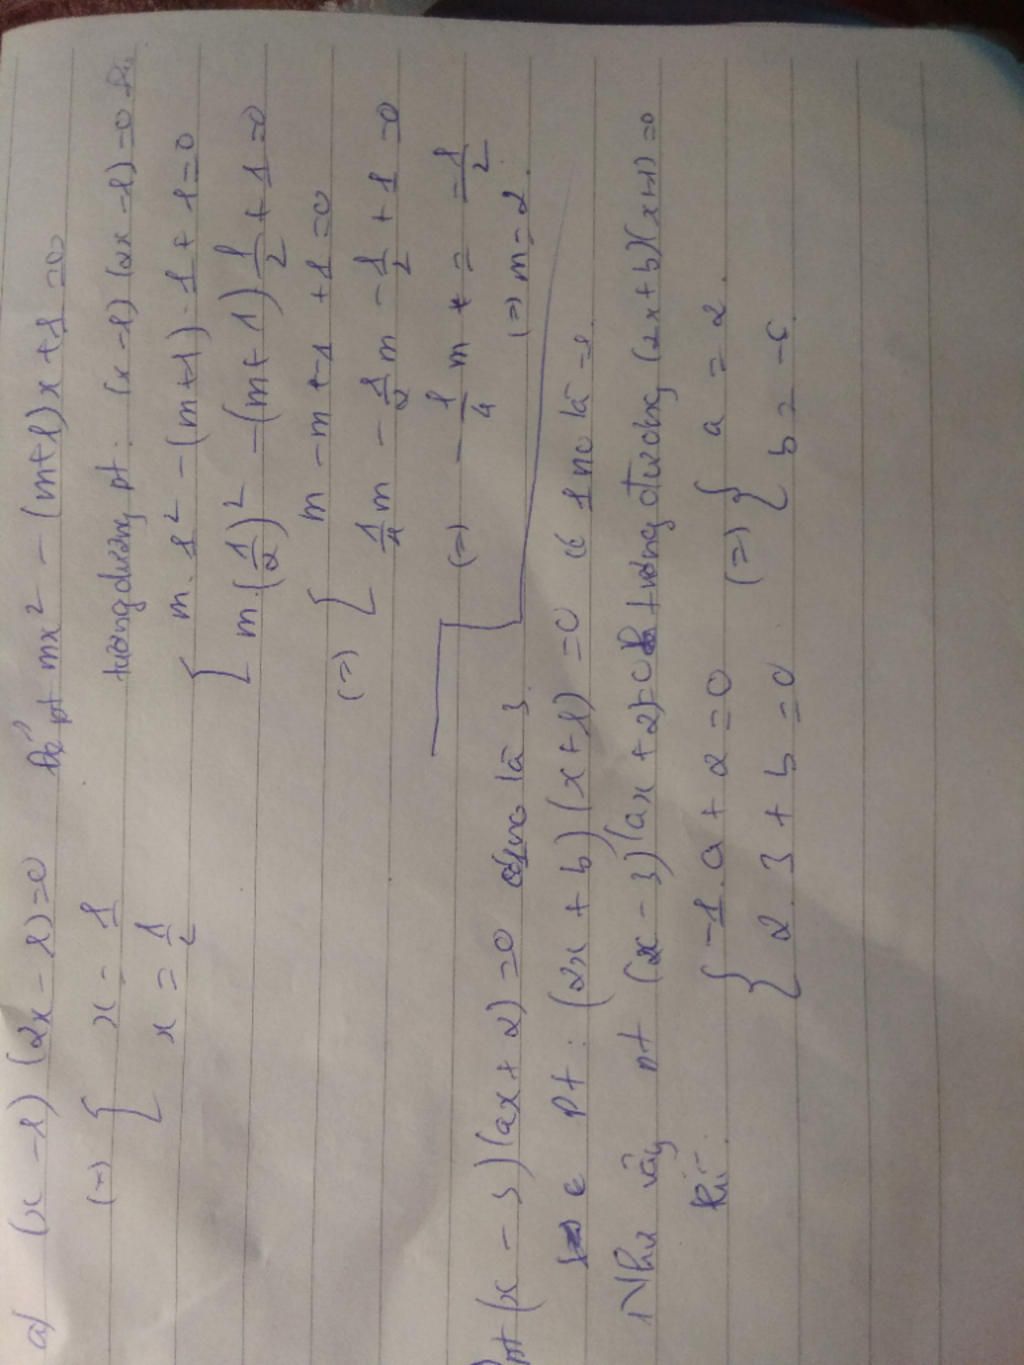 a) (x - 1) (2x - 1) = 0 Để pt mx² - (m+1)x + 1 = 0
(=) { x = 1 tương đương pt: (x - 1) (2x - 1) = 0 thì
x = 1/2 { m . 1² - (m+1) . 1 + 1 = 0
m . (1/2)² - (m + 1) 1/2 + 1 = 0
(=) { m - m + -1 + 1 = 0
1/4 m - 1/2 m - 1/2 + 1 = 0
(=) - 1/4 m = - 1/2
(=) m = 2.
pt (x - 3) (ax + 2) = 0 có 1 no là 3.
pt : (2x + b) (x + 1) = 0 có 1 no là -1.
Như vậy pt (x - 3) (ax + 2) = 0 tương đương (2x + b) (x + 1) = 0
khi { -1 . a + 2 = 0 (=) { a = 2.
2 . 3 + b = 0 b = -6.